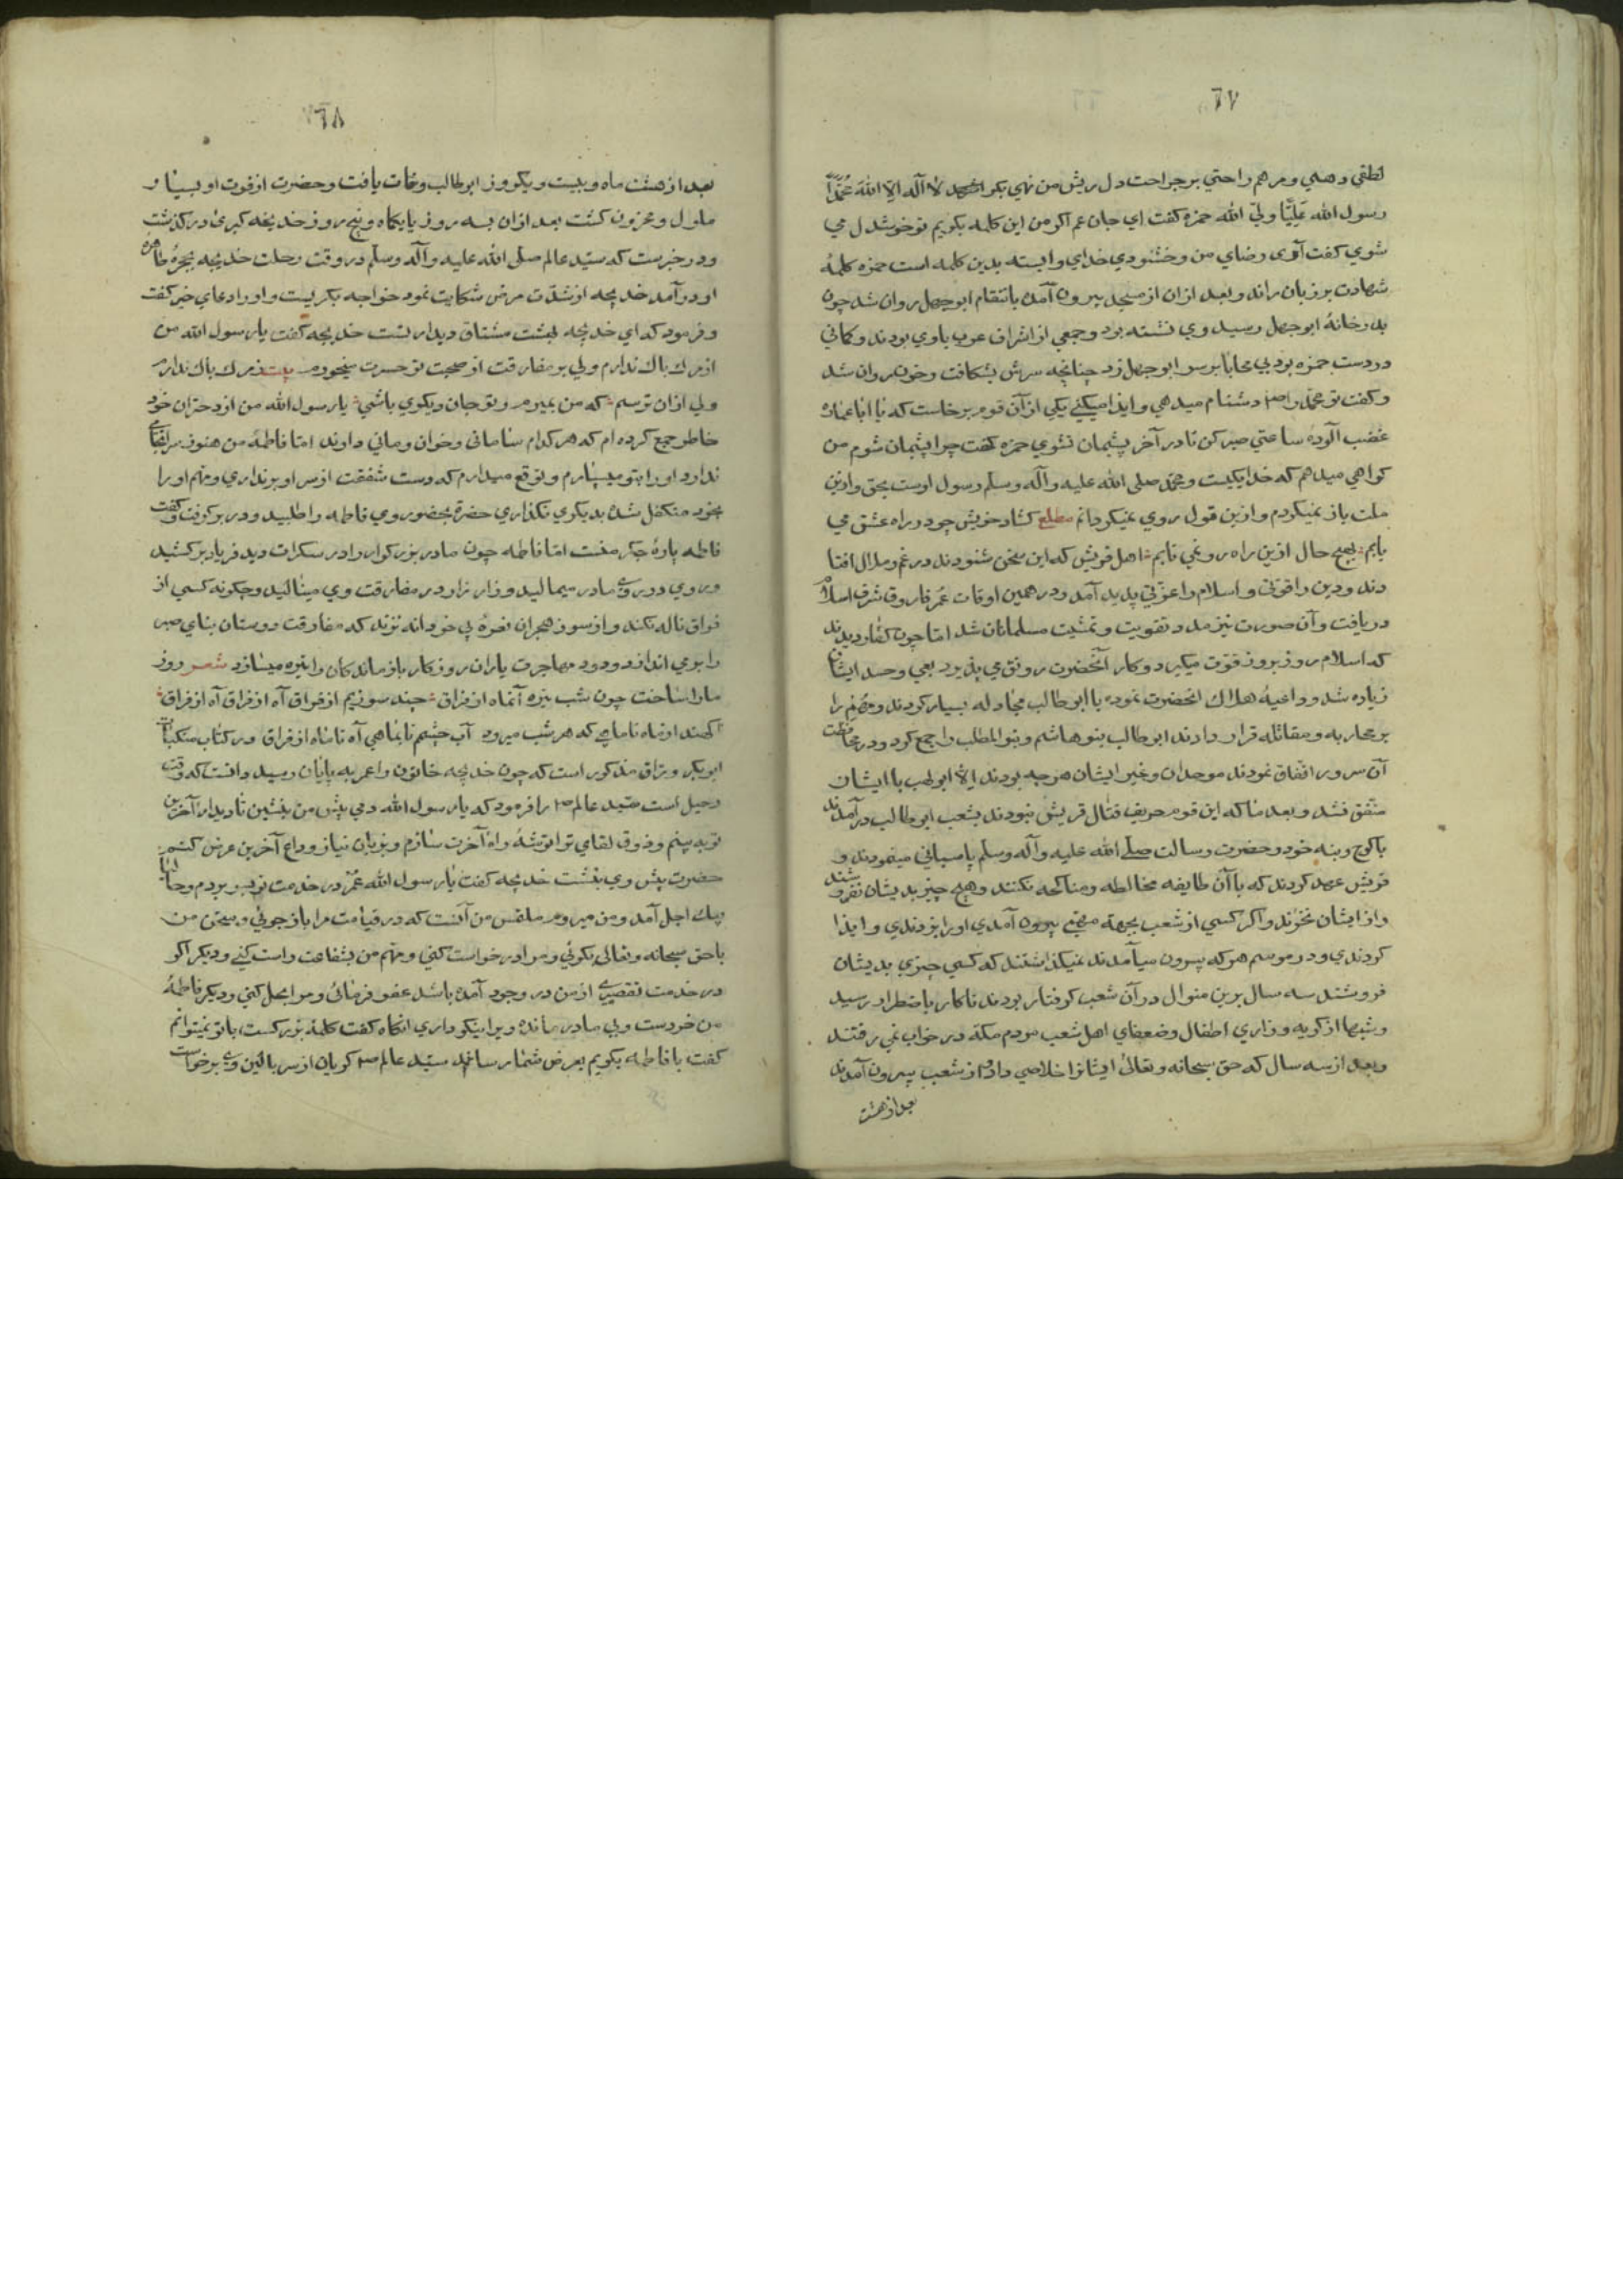 ٦٧
لطفی وهمی ومرهم راحتی بر جراحت دل ریش من نهی بکو اشهد لا اله الا الله محمدا
رسول الله علیا ولی الله حمزه کفت ای جان عم اکر من این کلمه بکویم تو خوشدل می
شوی کفت آری رضای من وخشنودی خدای وابسته بدین کلمه است حمزه کلمهٔ
شهادت بر زبان راند وبعد ازان از مسجد بیرون آمد بانتقام ابوجهل روان شد چون
بدرخانهٔ ابوجهل رسید وی نشسته بود وجمعی از اشراف عرب باوی بودند وکمانی
در دست حمزه بود بی محابا بر سر ابوجهل زد چنانچه سرش بشکافت وخون روان شد
وکفت تو محمد را دشنام میدهی وایذا میکنی یکی ازان قوم برخاست که یا ابا عماره
غضب آلوده ساعتی صبر کن تا در آخر پشیمان نشوی حمزه کفت چرا پشیمان شوم من
کواهی میدهم که خدا یکیست ومحمد صلی الله علیه وآله وسلم رسول اوست بحق وازین
ملت باز نمیکردم وازین قول روی نمیکردانم مطلع کشاد خویش چو در راه عشق می
یابم بهیچ حال ازین راه رو نمی تابم اهل قریش که این سخن شنودند در غم وملال افتا
دند ودین را قوتی واسلام را عزتی پدید آمد ودر همین اوقات عمر فاروق شرف اسلام
دریافت وآن صورت نیز ممد وتقویت وتمشیت مسلمانان شد اما چون کفار دیدند
که اسلام روز بروز قوت میکیرد وکار آنحضرت رونق می پذیرد بغی وحسد ایشان
زیاده شد وداعیهٔ هلاک انحضرت نموده با ابوطالب مجادله بسیار کردند
بر محاربه ومقاتله قرار دادند ابوطالب بنو هاشم وبنو المطلب را جمع کرد ودر محافظت
آن سرور اتفاق نمودند موحدان وغیر ایشان هر چه بودند الا ابولهب با ایشان
متفق نشد وبعد ما که این قوم حریف قتال قریش نبودند بشعب ابوطالب درآمدند
با کوچ وبنه خود وحضرت رسالت صلی الله علیه وآله وسلم پاسبانی مینمودند و
قریش عهد کردند که با آن طایفه مخالطه ومناکحه نکنند وهیچ چیز بدیشان نفروشند
واز ایشان نخرند واکر کسی از شعب بجهة مهمی بیرون آمدی اورا بزدندی وایذا
کردندی ودر موسم هر که بیرون میآمدند نمیکذاشتند که کسی چیزی بدیشان
فروشند سه سال برین منوال در آن شعب کرفتار بودند تا کار باضطرار رسید
وشبها از کریه وزاری اطفال وضعفای اهل شعب مردم مکه در خواب نمی رفتند
وبعد از سه سال که حق سبحانه وتعالی ایشانرا خلاصی داد از شعب بیرون آمدند
بعد از هشت
٦٨
بعد از هشت ماه وبیست ویکروز ابوطالب وفات یافت وحضرت از فوت او بسیار
ملول ومحزون کشت بعد ازان بسه روز یا یکماه وپنج روز خدیجه کبری درکذشت
ودر خبرست که سید عالم صلی الله علیه وآله وسلم در وقت رحلت خدیجه بحجرهٔ طاهره
او درآمد خدیجه از شدت مرض شکایت نمود خواجه بکریست واورا دعای خیر کفت
وفرمود که ای خدیجه بهشت مشتاق دیدار تست خدیجه کفت یا رسول الله من
از مرک باک ندارم ولی بر مفارقت از صحبت تو حسرت میخورم بیت ز مرک باک ندارم
ولی ازان ترسم که من بمیرم وتو جان دیکری باشی یا رسول الله من از دختران خود
خاطر جمع کرده ام که هر کدام سامانی وخوان ومانی دارند اما فاطمهٔ من هنوز
ندارد اورا بتو میسپارم وتوقع میدارم که دست شفقت از سر او برنداری ومهم اورا
بخود متکفل شده بدیکری نکذاری حضرة بحضور وی فاطمه را طلبید ودر بر کرفت وکفت
فاطمه پارهٔ جکر منست اما فاطمه چون مادر بزرکوار را در سکرات دید فریاد برکشید
وروی در روی مادر میمالید وزار زار در مفارقت وی مینالید وچکونه کسی از
فراق ناله نکند واز سوز هجران نعرهٔ بی خودانه نزند که مفارقت دوستان بنای صبر
را برمی اندازد ودود مهاجرت یاران روزکار بازماندکان را تیره میسازد شعر روز
مارا ساخت چون شب تیره آنماه از فراق چند سوزیم از فراق آه از فراق آه از فراق
آب چشم تا بماهی آه تا ماه از فراق ودر کتاب
ابوبکر وراق مذکور است که چون خدیجه خاتون را عمر به پایان رسید دانست که وقت
رحیل است سید عالم را فرمود که یا رسول الله دمی پیش من بنشین تا دیدار آخرین
تو به بینم وذوق لقای ترا توشهٔ راه آخرت سازم وبزبان نیاز وداع آخرین عرض کنم
حضرت پیش وی بنشست خدیجه کفت یا رسول الله عمر در خدمت تو بسر بردم وحالا
پیک اجل آمد ومن میروم ملتمس من آنست که در قیامت مرا باز جوئی وسخن من
با حق سبحانه وتعالی بکوئی ومرا درخواست کنی ومهم من بشفاعت راست کنی ودیکر اکر
در خدمت تقصیری از من در وجود آمده باشد عفو فرمائی ومرا بحل کنی ودیکر فاطمهٔ
من خردست وبی مادر مانده ویرا نیکو داری انکاه کفت کلمهٔ دیکرست با تو نمیتوانم
کفت با فاطمه بکویم بعرض شما رساند سید عالم کریان از سر بالین وی برخواست